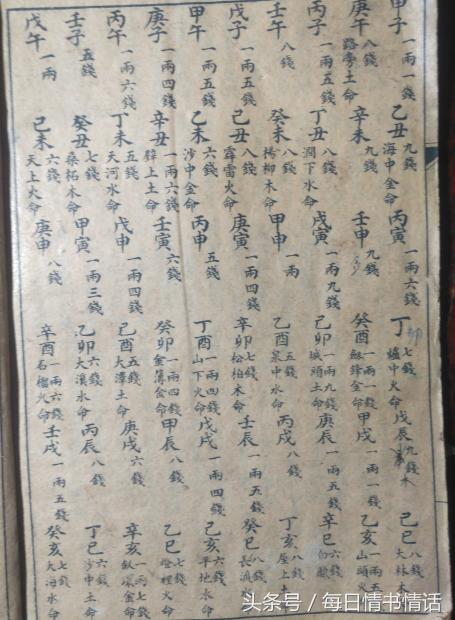 甲子 一兩一錢 乙丑 九錢 海中金命 丙寅 一兩六錢 丁卯 七錢 爐中火命 戊辰 九錢 木 己巳 八錢 大林木
庚午 八錢 路旁土命 辛未 九錢 壬申 九錢 癸酉 一兩一錢 劍鋒金命 甲戌 一兩一錢 乙亥 一兩五 山頭火
丙子 一兩五錢 丁丑 八錢 澗下水命 戊寅 一兩九錢 己卯 一兩九錢 城頭土命 庚辰 一兩五錢 辛巳 六錢 白臘
壬午 八錢 癸未 八錢 楊柳木命 甲申 一兩 乙酉 五錢 泉中水命 丙戌 八錢 丁亥 八錢 屋上土
戊子 一兩五錢 己丑 八錢 霹雷火命 庚寅 一兩四錢 辛卯 七錢 松柏木命 壬辰 一兩五錢 癸巳 八錢
甲午 一兩五錢 乙未 六錢 沙中金命 丙申 五錢 丁酉 一兩四錢 山下火命 戊戌 一兩四錢 己亥 六錢 平地水命
庚子 一兩四錢 辛丑 一兩六錢 壁上土命 壬寅 六錢 癸卯 一兩四錢 金簿金命 甲辰 八錢 乙巳 七錢 燈裡火命
丙午 一兩六錢 丁未 五錢 天河水命 戊申 一兩四錢 己酉 五錢 大澤土命 庚戌 六錢 辛亥 一兩七錢 釵環金命
壬子 五錢 癸丑 七錢 桑柘木命 甲寅 一兩三錢 乙卯 六錢 大溪水命 丙辰 八錢 丁巳 六錢 沙中土命
戊午 一兩 己未 六錢 天上火命 庚申 八錢 辛酉 一兩六錢 石榴火命 壬戌 一兩五錢 癸亥 七錢 大海水命
头条号 / 每日情书情话